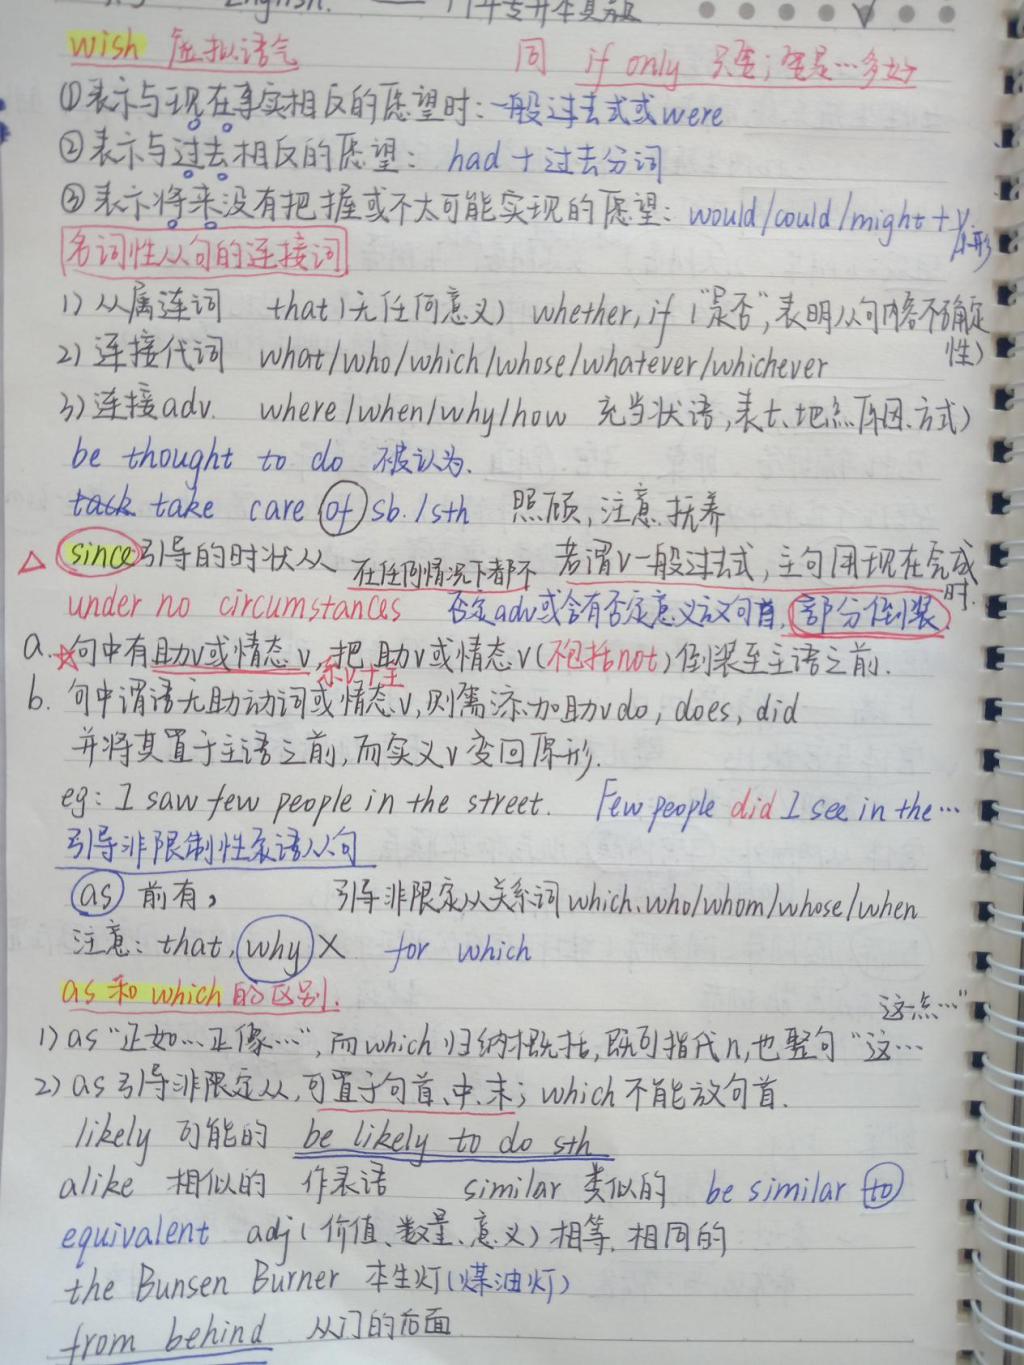 English.
wish 虚拟语气 同 if only 只要;要是…多好
①表示与现在事实相反的愿望时:一般过去式或were
②表示与过去相反的愿望: had + 过去分词
③表示将来没有把握或不太可能实现的愿望: would/could/might + V原形
名词性从句的连接词
1) 从属连词 that(无任何意义) whether, if ("是否",表明从句内容不确定性)
2) 连接代词 what/who/which/whose/whatever/whichever
3) 连接adv. where/when/why/how 充当状语,表t、地点、原因、方式)
be thought to do 被认为.
take care of sb./sth 照顾,注意.抚养
△ since引导的时状从 若谓v一般过去式,主句用现在完成时.
在任何情况下都不
under no circumstances 否定adv或含有否定意义放句首,部分倒装.
a.☆句中有助v或情态v,把助v或情态v(不包括not)倒装至主语之前.
系v+主
b. 句中谓语无助动词或情态v,则需添加助v do, does, did
并将其置于主语之前,而实义v变回原形.
eg: I saw few people in the street. Few people did I see in the…
引导非限制性定语从句
as 前有, 引导非限定从关系词which、who/whom/whose/when
注意: that, why × for which
as和which的区别.
1) as "正如…正像…",而which归纳概括,既可指代n,也整句"这…这点…"
2) as引导非限定从,可置于句首、中、末; which不能放句首.
likely 可能的 be likely to do sth
alike 相似的 作表语 similar 类似的 be similar to
equivalent adj(价值、数量、意义)相等.相同的
the Bunsen Burner 本生灯(煤油灯)
from behind 从门的后面